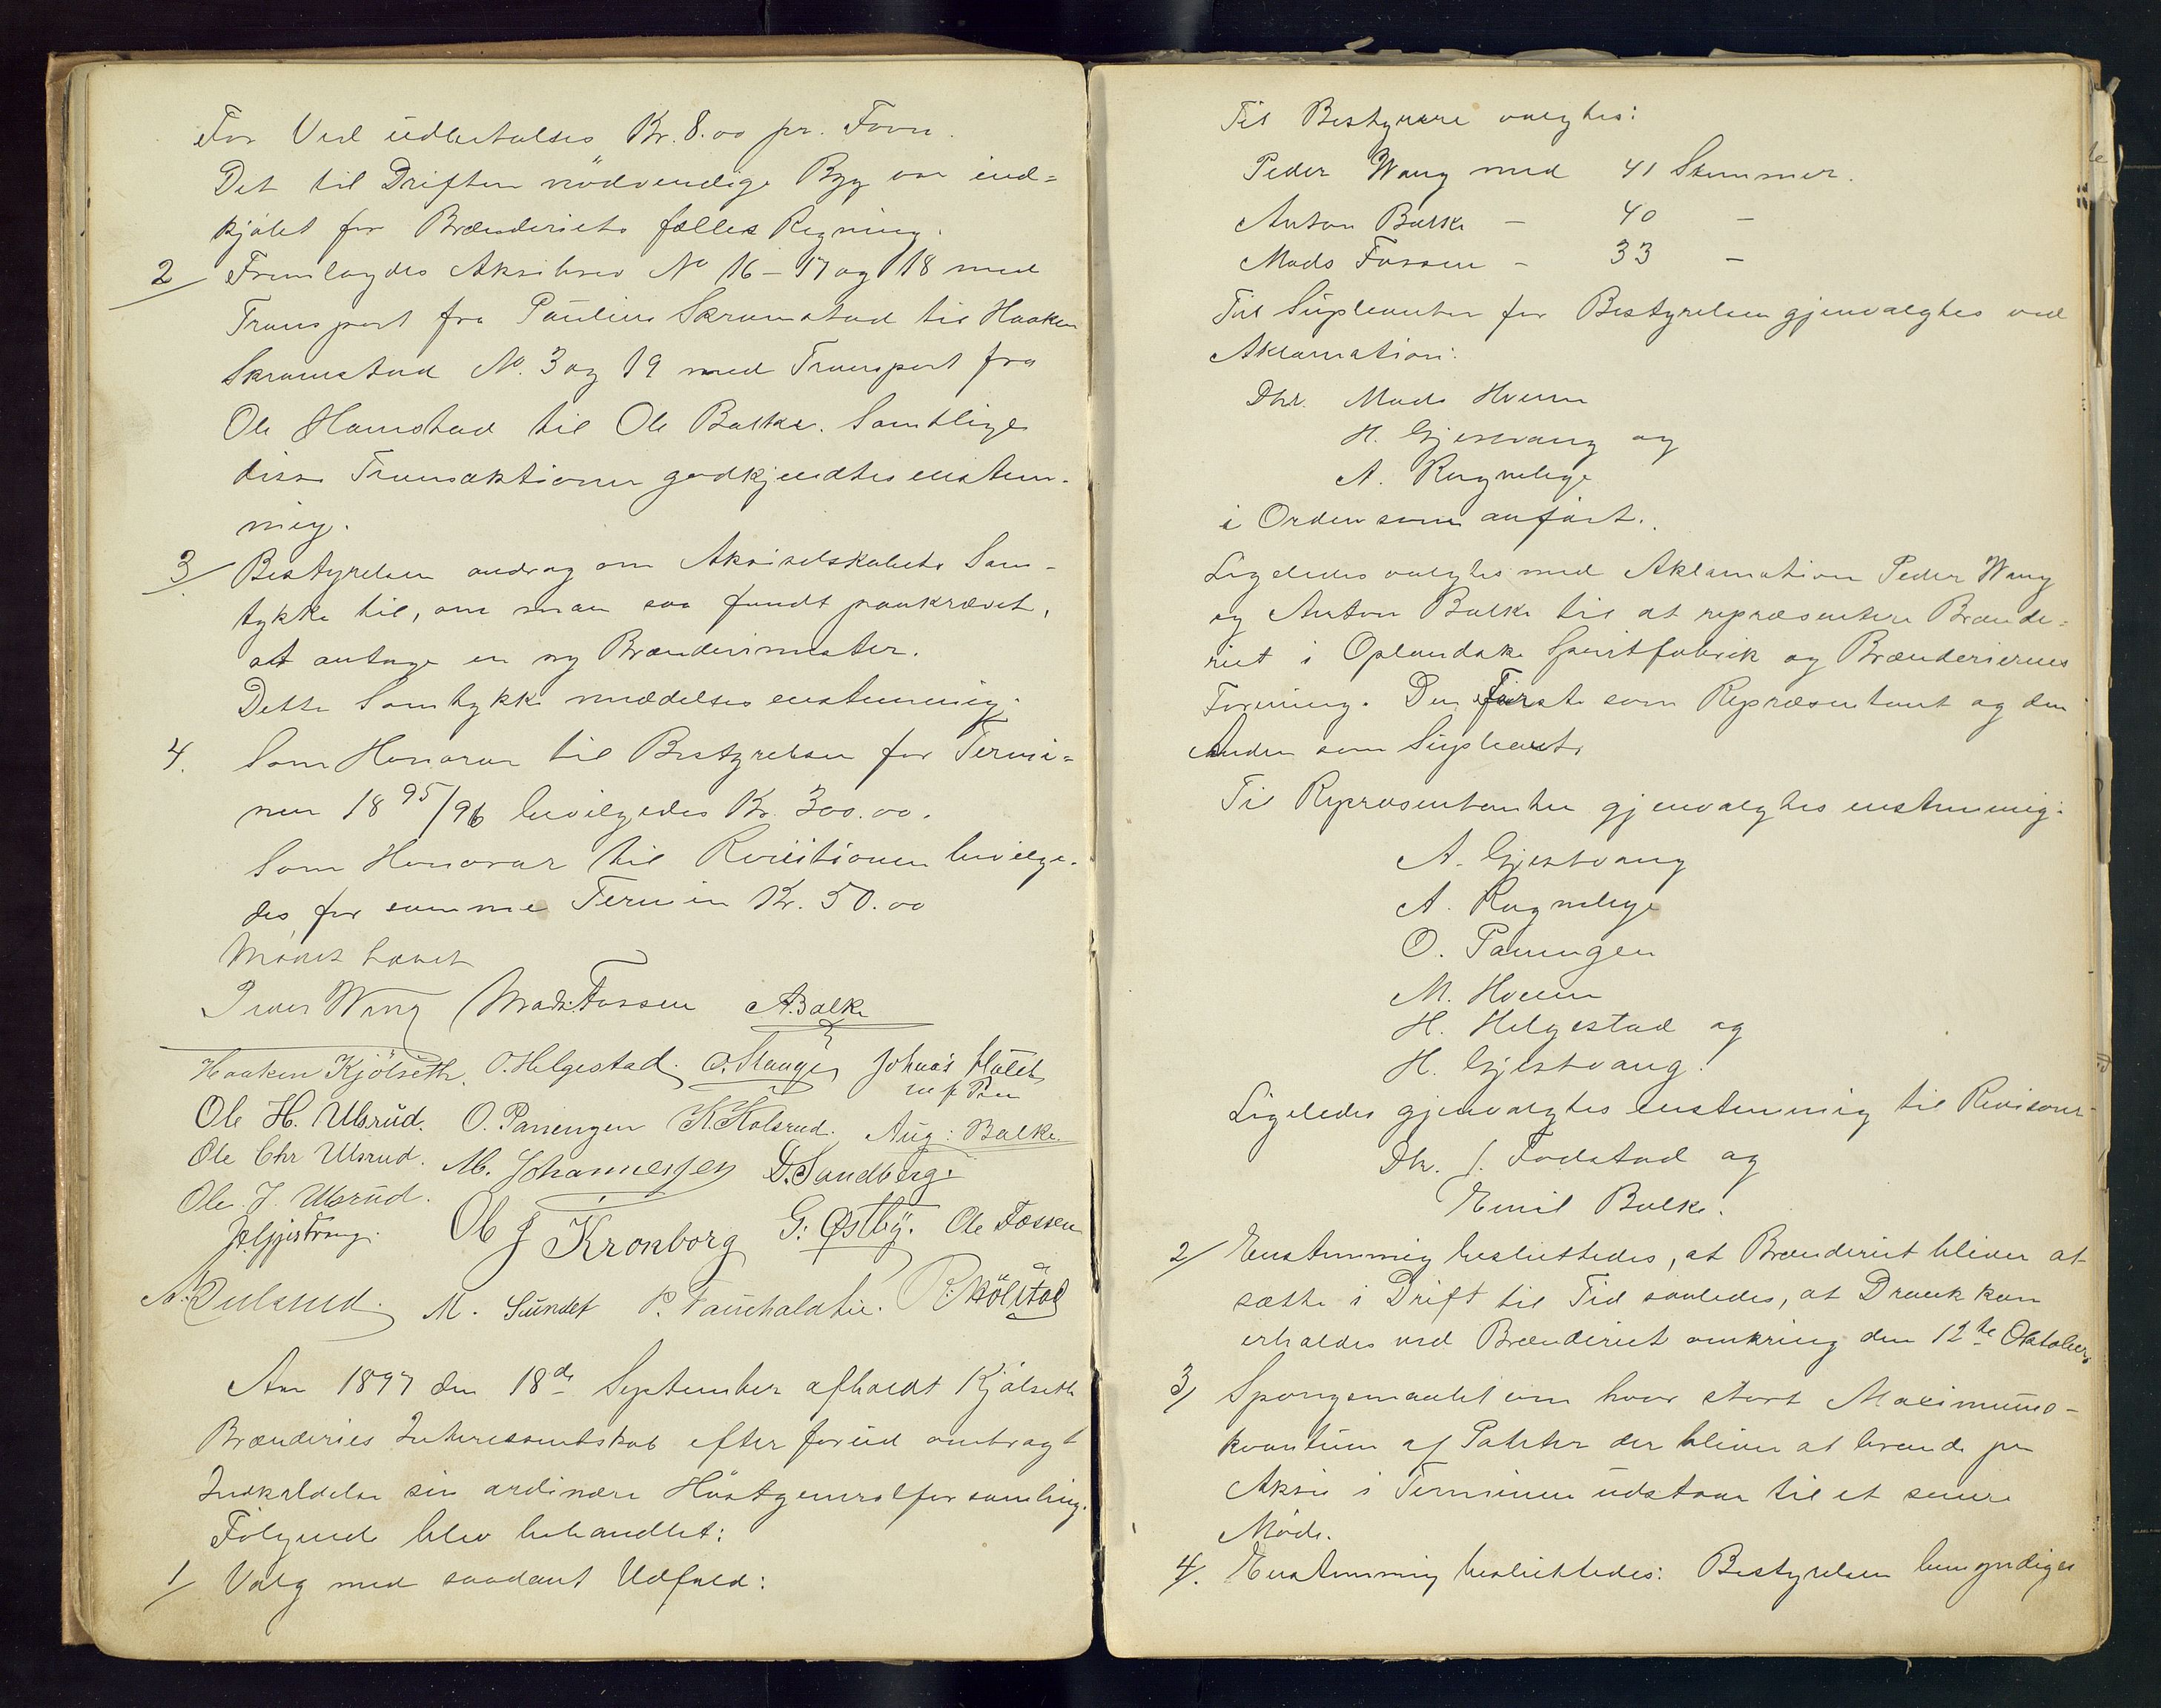 For Ved udbetaltes Kr. 8.00 pr. Favn.
Det til Driften nödvendige Byg var ind-
kjöbt for Brænderiets fælles Regning.
2/ Fremlagdes Aksibrev No 16-17 og 18 med
Transport fra Pauline Skramstad til Haaken
Skramstad No. 3 og 19 med Transport fra
Ole Hamstad til Ole Balke. Samtlige
disse Transaktioner godkjendtes enstem-
mig.
3/ Bestyrelsen androg om Aksieselskabets Sam-
tykke til, om man saa fandt paakrævet,
at antage en ny Brænderimester.
Dette Samtykke meddeltes enstemmig.
4. Som Honorar til Bestyrelsen for Termi-
nen 1895/96 bevilgedes Kr. 300.00.
Som Honorar til Revisionen bevilge-
des for samme Termin Kr. 50.00
Mödet hævet
Peder Wang Mads Fossen A. Balke
Haaken Kjölseth. O. Helgestad. O. Stange Johnas
Ole H. Ulsrud. O. Panengen K. Kolsrud. Aug: Balke.
Ole Chr Ulsrud. M. Johannessen D. Sandberg.
Ole J. Ulsrud.
H. Gjestvang. Ole J Kronborg G: Østby. Ole Fossen
M. Sundet P. R. Kölstad
Aar 1897 den 18de September afholdt Kjölseth
Brænderies Interessentskab efter forud ombragt
Indkaldelse sin ordinære Höstgeneralforsamling.
Fölgende blev behandlet:
1/ Valg med saadant Udfald:
Til Bestyrere valgtes:
Peder Wang med 41 Stemmer.
Anton Balke - 40 -
Mads Fossen - 33 -
Til Supleanter for Bestyrelsen gjenvalgtes ved
Aklamation:
Dhr. Mads Hveem
H. Gjestvang og
A. Rognelige
i Orden som anfört.
Ligeledes valgtes med Aklamation Peder Wang
og Anton Balke til at repræsentere Brænde-
riet i Oplandske Spritfabrik og Brænderiernes
Forening. Den Förste som Repræsentant og den
Anden som Supleant.
Til Repræsentanter gjenvalgtes enstemmig:
A. Gjestvang
A. Rognelige
O. Panengen
M. Hveem
H. Helgestad og
H. Gjestvang.
Ligeledes gjenvalgtes enstemmig til Revisorer
Dhr. J. Fodstad og
Emil Balke.
2/ Enstemmig besluttedes, at Brænderiet bliver at
sætte i Drift til Tid saaledes, at Drank kan
erholdes ved Brænderiet omkring den 12te Oktober.
3/ Spörgsmaalet om hvor stort Maximums-
kvantum af Poteter der bliver at brænde pr
Aksie i Terminen udstaar til et senere
Möde.
4/. Enstemmig besluttedes: Bestyrelsen bemyndiges